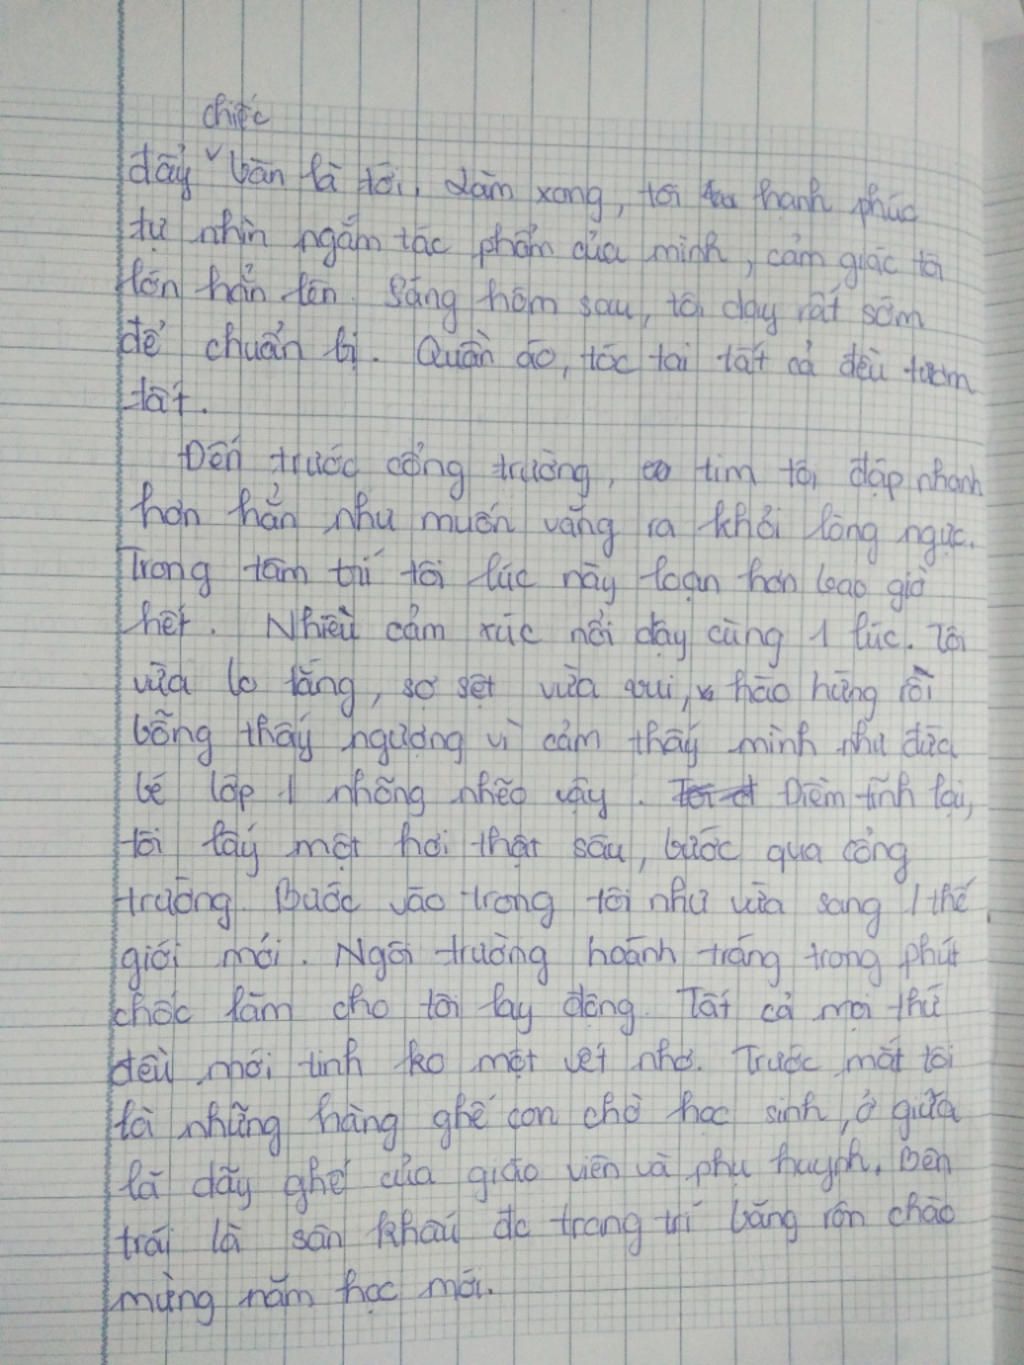 chiếc
đẩy ˅ bàn là tới. Làm xong, tôi hạnh phúc
tự nhìn ngắm tác phẩm của mình, cảm giác tôi
lớn hẳn lên. Sáng hôm sau, tôi dạy rất sớm
để chuẩn bị. Quần áo, tóc tai tất cả đều tươm
tất.
Đến trước cổng trường, tim tôi đập nhanh
hơn hẳn như muốn văng ra khỏi lồng ngực.
Trong tâm trí tôi lúc này loạn hơn bao giờ
hết. Nhiều cảm xúc nổi dậy cùng 1 lúc. Tôi
vừa lo lắng, sơ sệt vừa vui, hào hứng rồi
bỗng thấy ngượng vì cảm thấy mình như đứa
bé lớp 1 nhõng nhẽo vậy. Điềm tĩnh lại,
tôi lấy một hơi thật sâu, bước qua cổng
trường. Bước vào trong tôi như vừa sang 1 thế
giới mới. Ngôi trường hoành tráng trong phút
chốc làm cho tôi lay động. Tất cả mọi thứ
đều mới tinh ko một vết nhơ. Trước mắt tôi
là những hàng ghế con chờ học sinh, ở giữa
là dãy ghế của giáo viên và phụ huynh. Bên
trái là sân khấu đc trang trí băng rôn chào
mừng năm học mới.